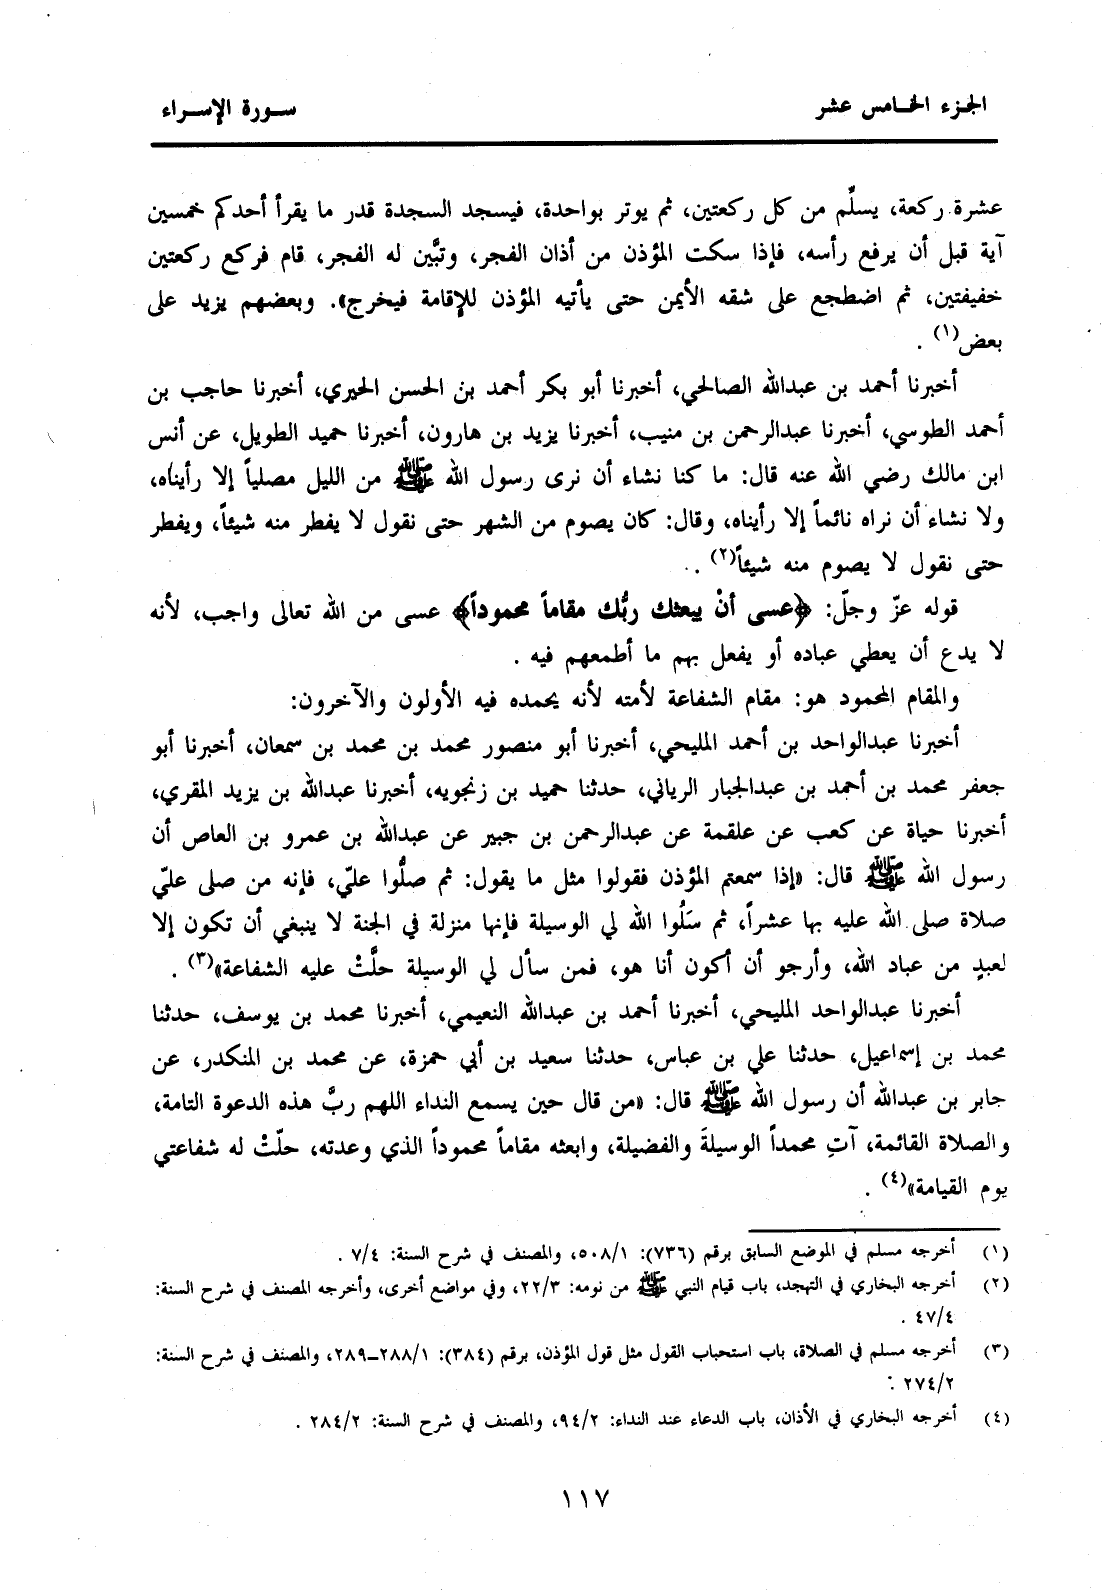 الجزء الخامس عشر
سورة الإسراء
عشرة ركعة، يسلِّم من كل ركعتين، ثم يوتر بواحدة، فيسجد السجدة قدر ما يقرأ أحدكم خمسين
آية قبل أن يرفع رأسه، فإذا سكت المؤذن من أذان الفجر، وتبَّين له الفجر، قام فركع ركعتين
خفيفتين، ثم اضطجع على شقه الأيمن حتى يأتيه المؤذن للإقامة فيخرج». وبعضهم يزيد على
بعض(١) .
أخبرنا أحمد بن عبدالله الصالحي، أخبرنا أبو بكر أحمد بن الحسن الحيري، أخبرنا حاجب بن
أحمد الطوسي، أخبرنا عبدالرحمن بن منيب، أخبرنا يزيد بن هارون، أخبرنا حميد الطويل، عن أنس
ابن مالك رضي الله عنه قال: ما كنا نشاء أن نرى رسول الله ﷺ من الليل مصلياً إلا رأيناه،
ولا نشاء أن نراه نائماً إلا رأيناه، وقال: كان يصوم من الشهر حتى نقول لا يفطر منه شيئاً، ويفطر
حتى نقول لا يصوم منه شيئاً(٢) .
قوله عزّ وجلّ: ﴿عسى أنْ يبعثك ربُّك مقاماً محموداً﴾ عسى من الله تعالى واجب، لأنه
لا يدع أن يعطي عباده أو يفعل بهم ما أطمعهم فيه .
والمقام المحمود هو: مقام الشفاعة لأمته لأنه يحمده فيه الأولون والآخرون:
أخبرنا عبدالواحد بن أحمد المليحي، أخبرنا أبو منصور محمد بن محمد بن سمعان، أخبرنا أبو
جعفر محمد بن أحمد بن عبدالجبار الرياني، حدثنا حميد بن زنجويه، أخبرنا عبدالله بن يزيد المقري،
أخبرنا حياة عن كعب عن علقمة عن عبدالرحمن بن جبير عن عبدالله بن عمرو بن العاص أن
رسول الله ﷺ قال: «إذا سمعتم المؤذن فقولوا مثل ما يقول: ثم صلُّوا عليّ، فإنه من صلى عليّ
صلاة صلى الله عليه بها عشراً، ثم سَلُوا الله لي الوسيلة فإنها منزلة في الجنة لا ينبغي أن تكون إلا
لعبدٍ من عباد الله، وأرجو أن أكون أنا هو، فمن سأل لي الوسيلة حلَّتْ عليه الشفاعة»(٣) .
أخبرنا عبدالواحد المليحي، أخبرنا أحمد بن عبدالله النعيمي، أخبرنا محمد بن يوسف، حدثنا
محمد بن إسماعيل، حدثنا علي بن عباس، حدثنا سعيد بن أبي حمزة، عن محمد بن المنكدر، عن
جابر بن عبدالله أن رسول الله ﷺ قال: «من قال حين يسمع النداء اللهم ربَّ هذه الدعوة التامة،
والصلاة القائمة، آتِ محمداً الوسيلةَ والفضيلة، وابعثه مقاماً محموداً الذي وعدته، حلّتْ له شفاعتي
يوم القيامة»(٤) .
(١) أخرجه مسلم في الموضع السابق برقم (٧٣٦): ٥٠٨/١، والمصنف في شرح السنة: ٧/٤ .
(٢) أخرجه البخاري في التهجد، باب قيام النبي ﷺ من نومه: ٢٢/٣، وفي مواضع أخرى، وأخرجه المصنف في شرح السنة:
٤٧/٤ .
(٣) أخرجه مسلم في الصلاة، باب استحباب القول مثل قول المؤذن، برقم (٣٨٤): ٢٨٨/١-٢٨٩، والمصنف في شرح السنة:
٢٧٤/٢ .
(٤) أخرجه البخاري في الأذان، باب الدعاء عند النداء: ٩٤/٢، والمصنف في شرح السنة: ٢٨٤/٢ .
١١٧